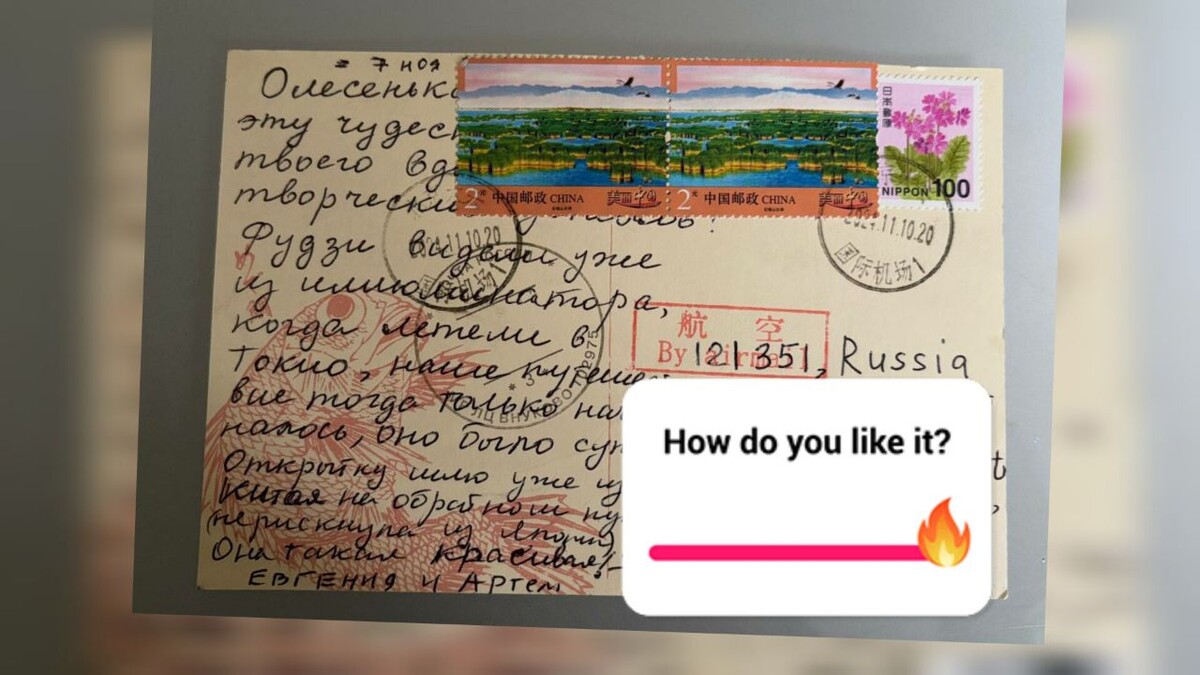 7 ноя
Олесенька
эту чудес
твоего вд
творчески
Фудзи видели уже
из иллюминатора,
когда летели в
Токио, наше путешес
вие тогда только на
налось, оно было суп
Открытку шлю уже из
Китая на обратном пу
(не рискнула из Японии)
Она такая красивая!
ЕВГЕНИЯ И Артем
2元 中国邮政 CHINA 美丽中国
2元 中国邮政 CHINA 美丽中国
日本郵便
NIPPON 100
2024.11.10.20
国际机场1
2024.11.10.20
国际机场1
102975
航 空
By airmail
121351, Russia
How do you like it?